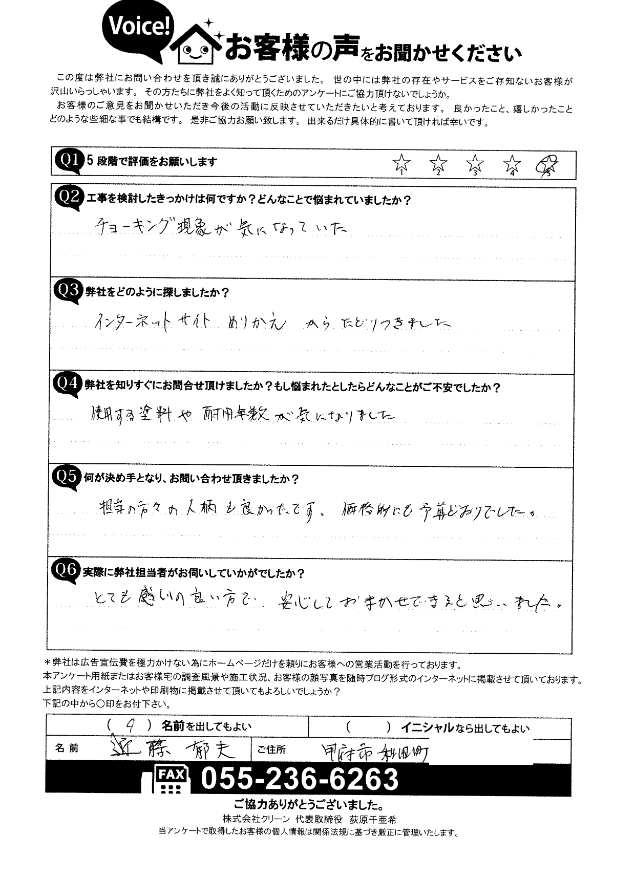 Voice!
お客様の声をお聞かせください
この度は弊社にお問い合わせを頂き誠にありがとうございました。 世の中には弊社の存在やサービスをご存知ないお客様が
沢山いらっしゃいます。 その方たちに弊社をよく知って頂くためのアンケートにご協力頂けないでしょうか。
お客様のご意見をお聞かせいただき今後の活動に反映させていただきたいと考えております。 良かったこと、嬉しかったこと
どのような些細な事でも結構です。 是非ご協力お願い致します。 出来るだけ具体的に書いて頂ければ幸いです。
Q1 5 段階で評価をお願いします ☆1 ☆2 ☆3 ☆4 ☆5
Q2 工事を検討したきっかけは何ですか？どんなことで悩まれていましたか？
チョーキング現象が気になっていた
Q3 弊社をどのように探しましたか？
インターネットサイト ぬりかえ からたどりつきました
Q4 弊社を知りすぐにお問合せ頂けましたか？もし悩まれたとしたらどんなことがご不安でしたか？
使用する塗料や耐用年数が気になりました
Q5 何が決め手となり、お問い合わせ頂きましたか？
担当の方々の人柄も良かったです。 価格的にも予算どおりでした。
Q6 実際に弊社担当者がお伺していかがでしたか？
とても感じの良い方で、安心しておまかせできると思いました。
＊弊社は広告宣伝費を極力かけない為にホームページだけを頼りにお客様への営業活動を行っております。
本アンケート用紙またはお客様宅の調査風景や施工状況、お客様の顔写真を随時ブログ形式のインターネットに掲載させて頂いております。
上記内容をインターネットや印刷物に掲載させて頂いてもよろしいでしょうか？
下記の中から〇印をお付下さい。
( ) 名前を出してもよい ( ) イニシャルなら出してもよい
名前 近藤 郁夫 ご住所 甲府市
FAX 055-236-6263
ご協力ありがとうございました。
株式会社クリーン 代表取締役 荻原千亜希
当アンケートで取得したお客様の個人情報は関係法規に基づき厳正に管理いたします。